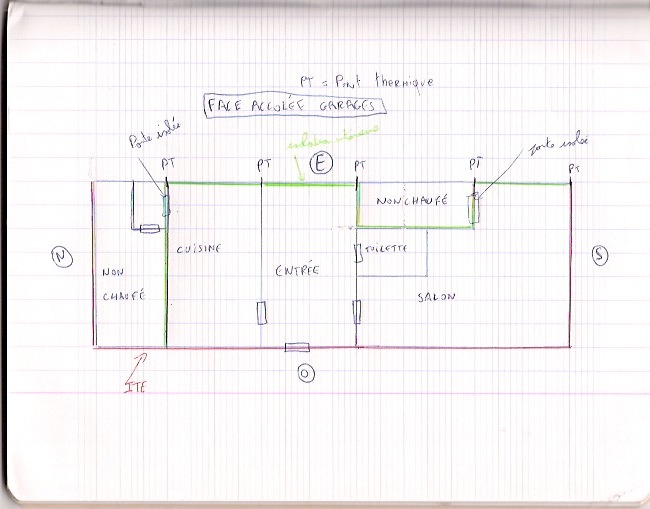 PT = Pont thermique
FACE ACCOLÉE GARAGES
Porte isolée
isolation intérieure
porte isolée
PT
PT
E
PT
PT
PT
NON CHAUFÉ
N
CUISINE
TOILETTE
S
NON
CHAUFÉ
ENTRÉE
SALON
ITE
O